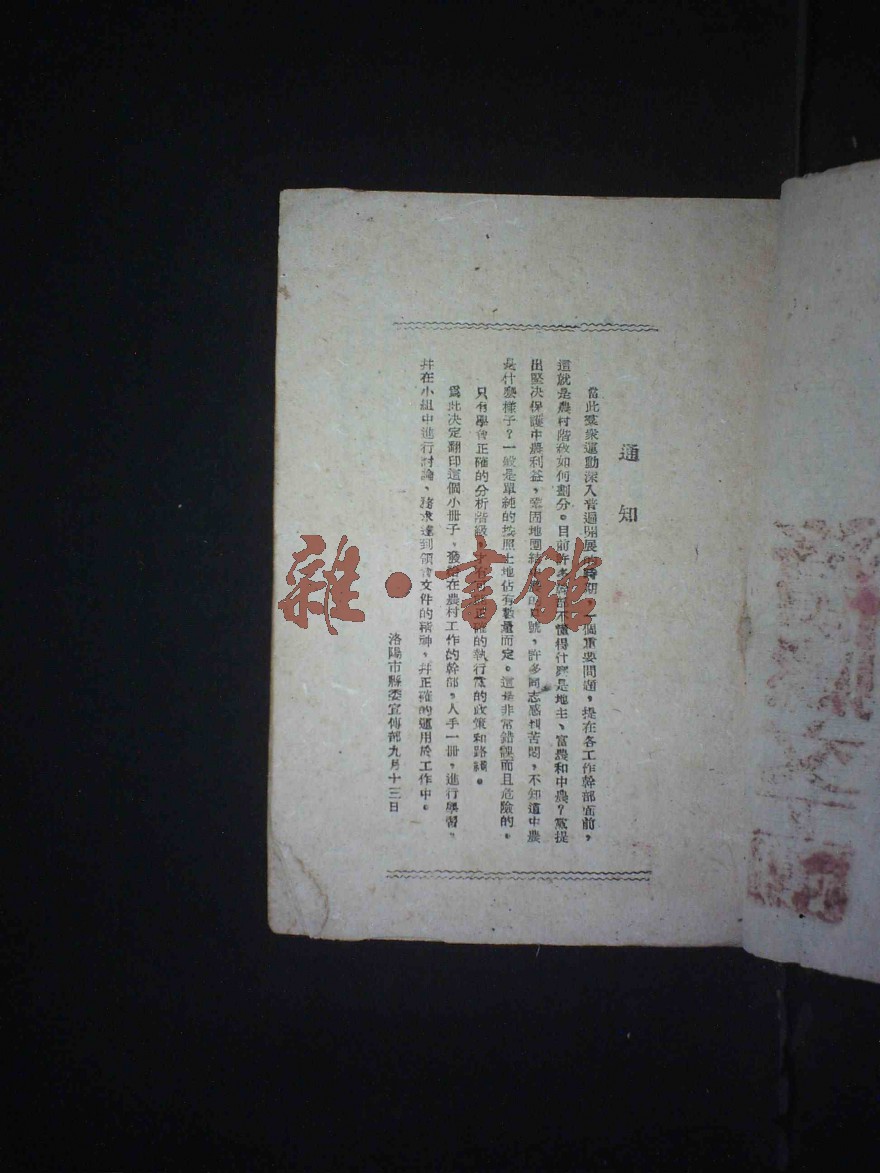 通知
當此羣衆運動深入普遍開展的時期，一個重要問題，提在各工作幹部面前，
這就是農村階級如何劃分。目前許多幹部不懂得什麽是地主、富農和中農？黨提
出堅决保護中農利益，鞏固地團結中農的口號，許多同志感到苦悶，不知道中農
是什麽樣子？一般是單純的按照土地佔有數量而定。這是非常錯誤而且危險的。
只有學會正確的分析階級，才有可能正確的執行黨的政策和路綫。
爲此决定翻印這個小冊子，發給在農村工作的幹部，人手一冊，進行學習，
幷在小組中進行討論，務求達到領會文件的精神，幷正確的運用於工作中。
洛陽市縣委宣傳部九月十三日
雜·書館